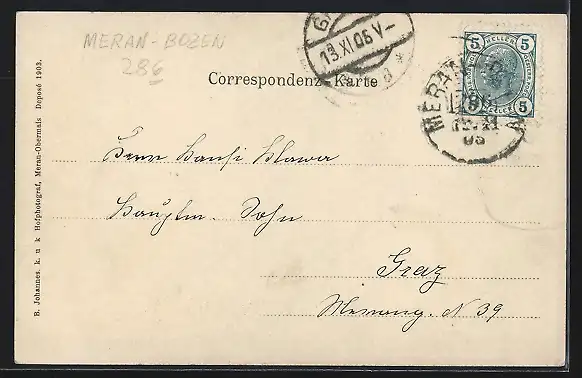 MERAN-BOZEN
286
Correspondenz-Karte
G
13.XI.05 V
5 HELLER 5
5 HELLER 5
MERAN
05
Herrn Hansi Klawa
Hauptm. Sohn
Graz
N 39
B. Johannes. k. u k Hofphotograf, Meran-Obermais Deposé 1903.